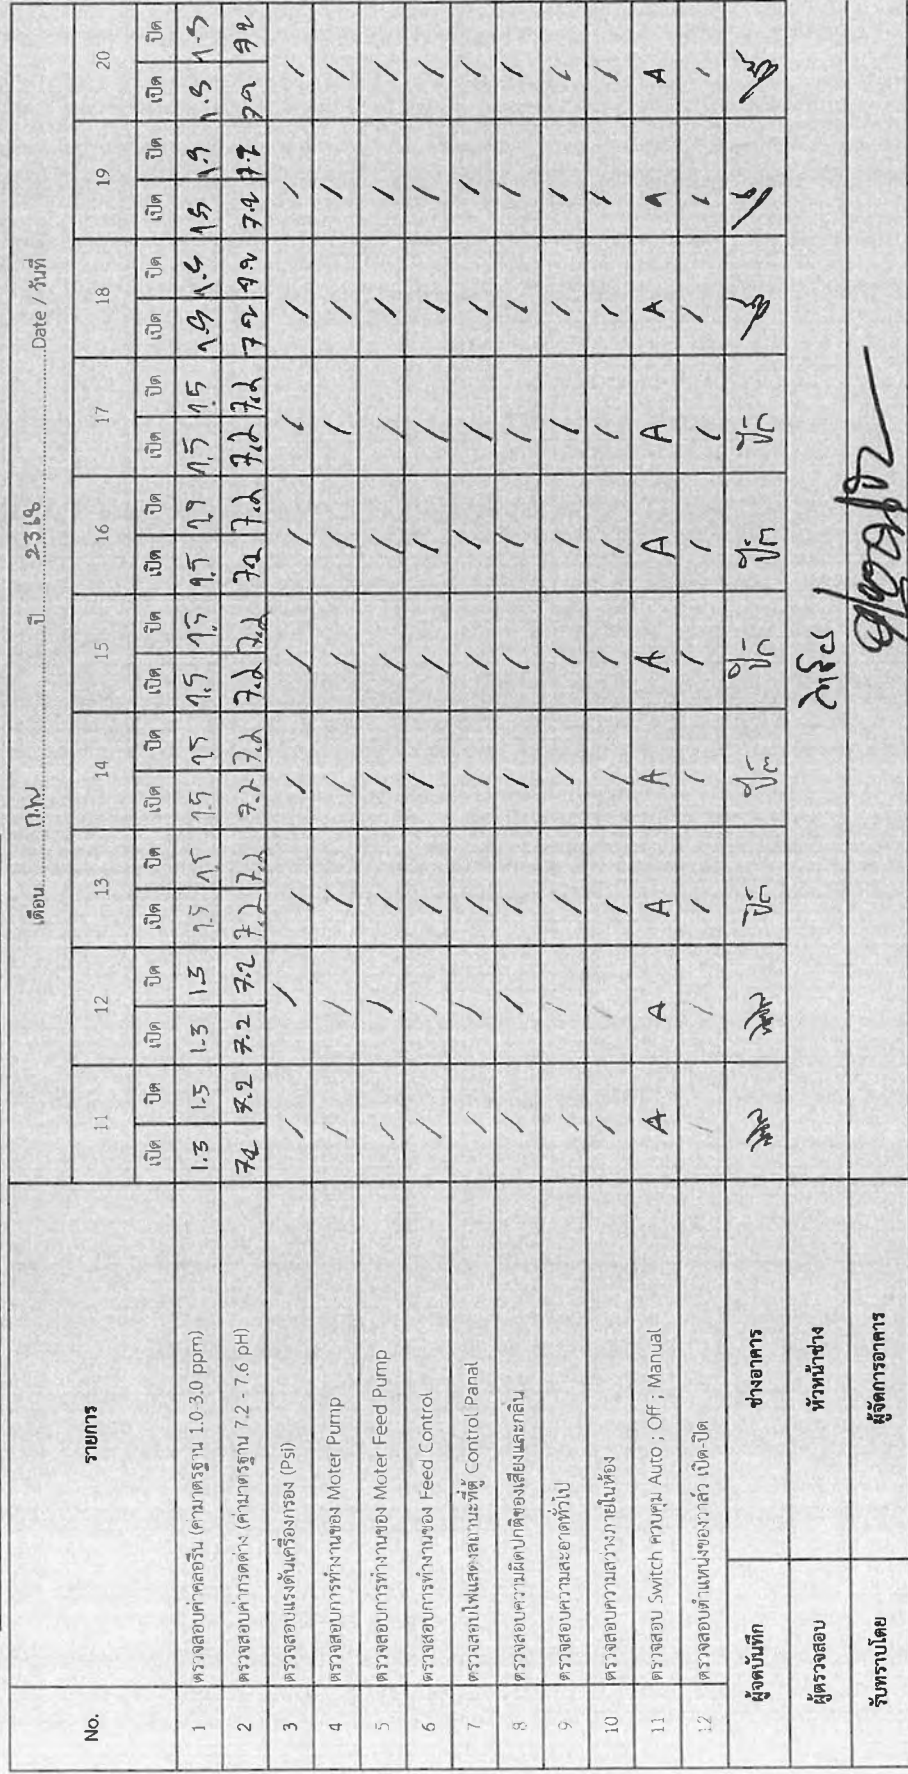 เดือน ก.พ ปี Date / วันที่
No. รายการ 11 12 13 14 15 16 17 18 19 20
เปิด ปิด เปิด ปิด เปิด ปิด เปิด ปิด เปิด ปิด เปิด ปิด เปิด ปิด เปิด ปิด เปิด ปิด เปิด ปิด
1 ตรวจสอบค่าคลอรีน (ค่ามาตรฐาน 1.0-3.0 ppm) 1.5 1.5 1.5 1.5 1.5 1.5 1.5 1.5 1.5 1.5 1.5 1.5 1.5 1.5 1.5 1.5
2 ตรวจสอบค่ากรดด่าง (ค่ามาตรฐาน 7.2 - 7.6 pH) 7.2 7.2 7.2 7.2 7.2 7.2 7.2 7.2 7.2 7.2 7.2 7.2 7.2 7.2 7.2 7.2 7.2 7.2 7.2 7.2
3 ตรวจสอบแรงดันเครื่องกรอง (Psi) / / / / / / / / / /
4 ตรวจสอบการทำงานของ Moter Pump / / / / / / / / / /
5 ตรวจสอบการทำงานของ Moter Feed Pump / / / / / / / / / /
6 ตรวจสอบการทำงานของ Feed Control / / / / / / / / / /
7 ตรวจสอบไฟแสดงสถานะที่ตู้ Control Panal / / / / / / / / / /
8 ตรวจสอบความผิดปกติของเสียงและกลิ่น / / / / / / / / / /
9 ตรวจสอบความสะอาดทั่วไป / / / / / / / / / /
10 ตรวจสอบความสว่างภายในห้อง / / / / / / / / / /
11 ตรวจสอบ Switch ควบคุม Auto ; Off ; Manual A A A A A A A A A A
12 ตรวจสอบตำแหน่งของวาล์ว เปิด-ปิด / / / / / / / / / /
ผู้จดบันทึก ช่างอาคาร
ผู้ตรวจสอบ หัวหน้าช่าง
รับทราบโดย ผู้จัดการอาคาร